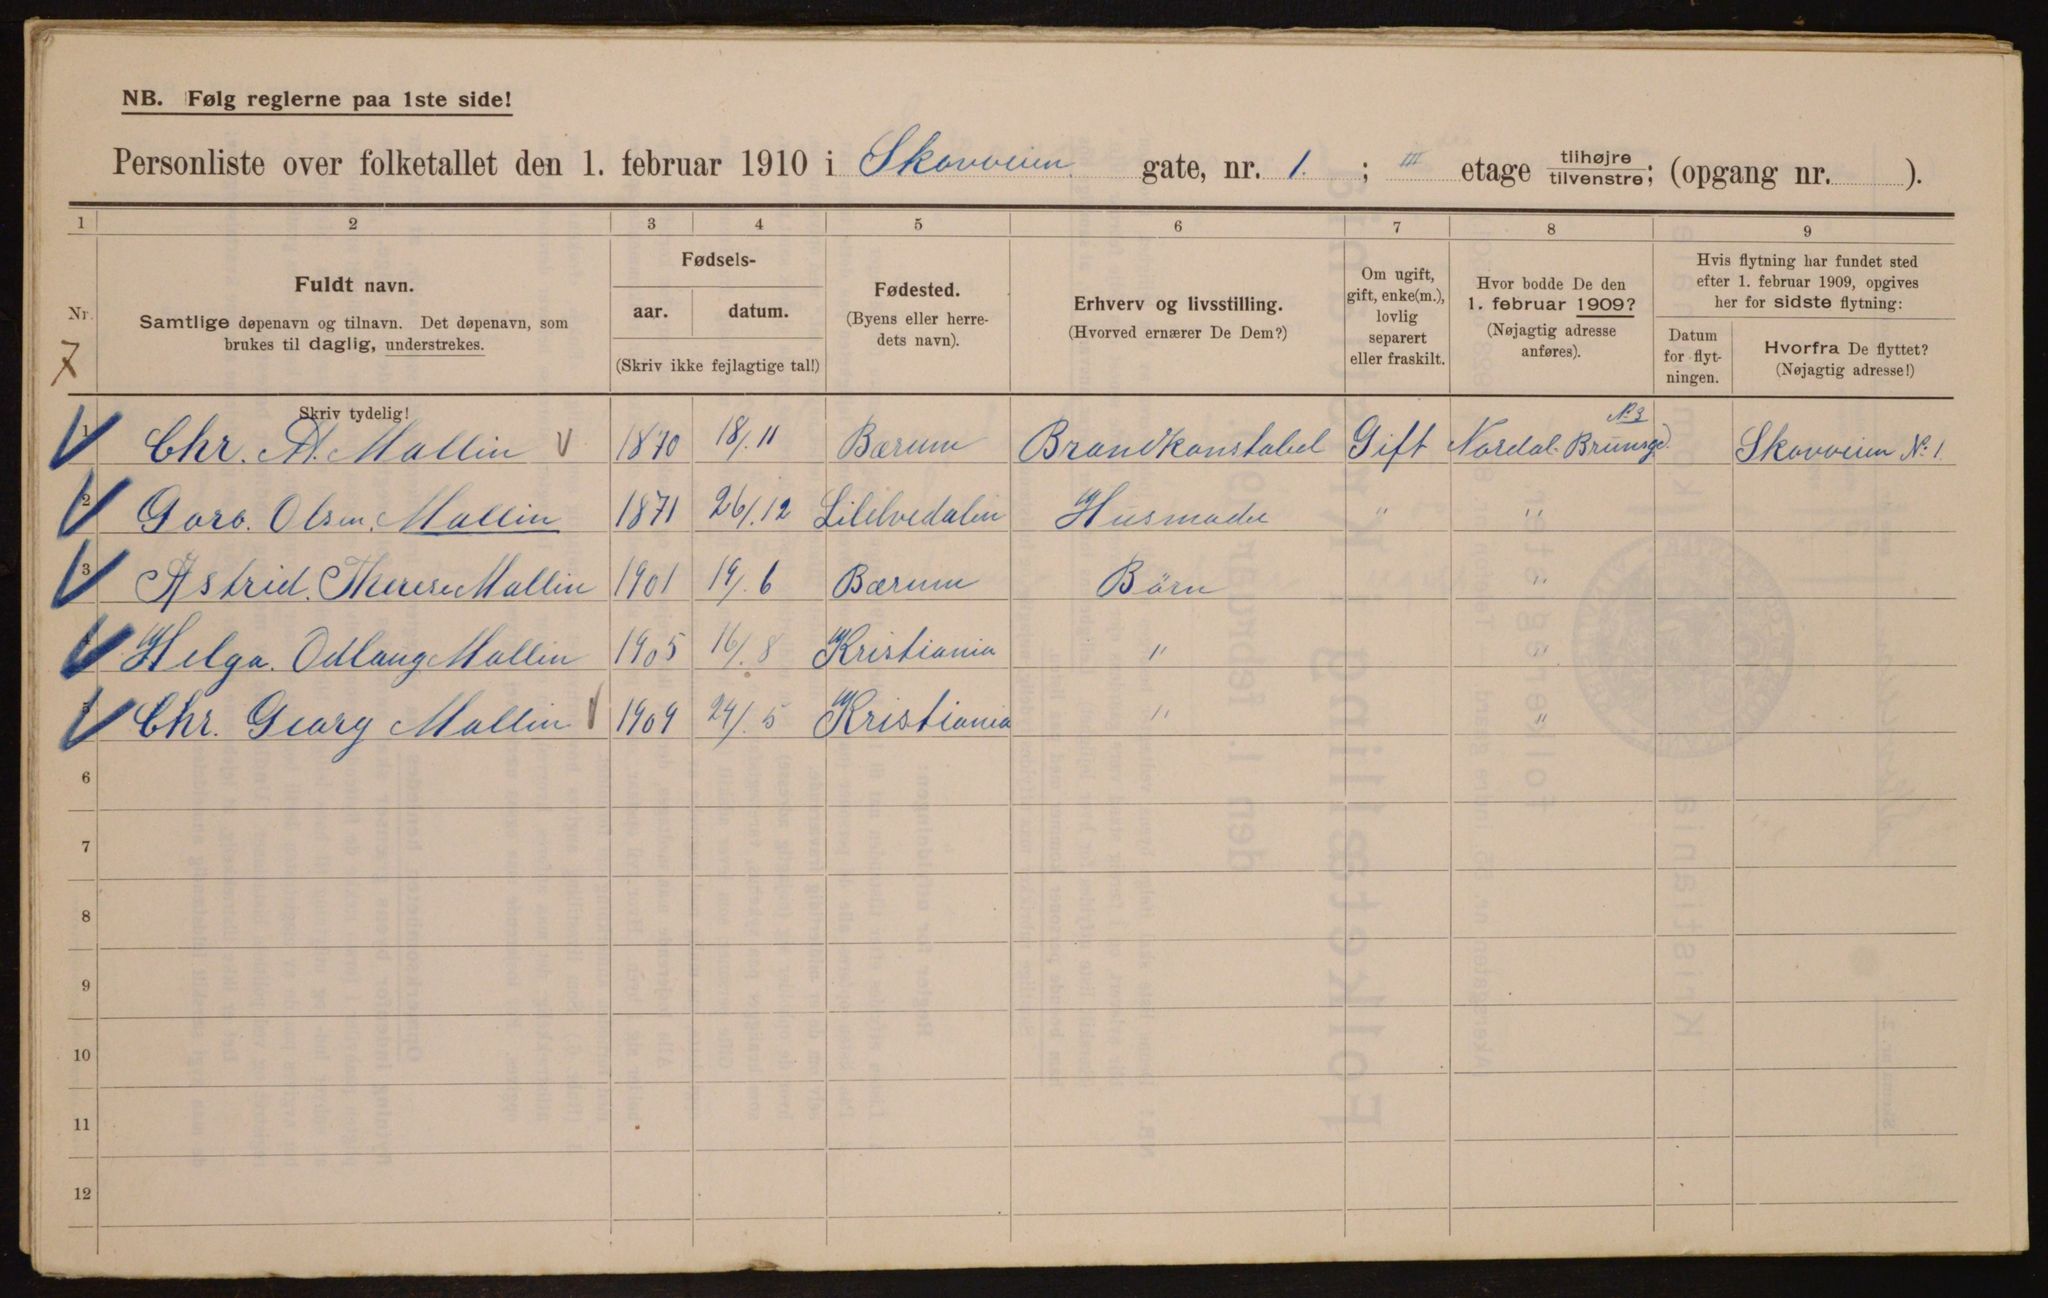 NB. Følg reglerne paa 1ste side!
Personliste over folketallet den 1. februar 1910 i Skovveien gate, nr. 1. ; III etage tilhøjre tilvenstre; (opgang nr. ).
1 2 3 4 5 6 7 8 9
Nr.
7
Fuldt navn.
Samtlige døpenavn og tilnavn. Det døpenavn, som
brukes til daglig, understrekes.
Skriv tydelig!
Fødsels-
aar. datum.
(Skriv ikke fejlagtige tal!)
Fødested.
(Byens eller herre-
dets navn).
Erhverv og livsstilling.
(Hvorved ernærer De Dem?)
Om ugift,
gift, enke(m.),
lovlig
separert
eller fraskilt.
Hvor bodde De den
1. februar 1909?
(Nøjagtig adresse
anføres).
Hvis flytning har fundet sted
efter 1. februar 1909, opgives
her for sidste flytning:
Datum
for flyt-
ningen.
Hvorfra De flyttet?
(Nøjagtig adresse!)
1 Chr. M. Mallin 1870 18/.11 Bærum Brandkonstabel Gift Nordal Brunsgd. No 3 Skovveien No 1.
2 Olsen. Mallin 1871 26/.12 Husmoder " "
3 Astrid. Therese Mallin 1901 19/.6 Bærum Børn "
4 Helga. Odlaug Mallin 1905 16/.8 Kristiania " "
5 Chr. Georg Mallin 1909 24/.5 Kristiania " "
6
7
8
9
10
11
12